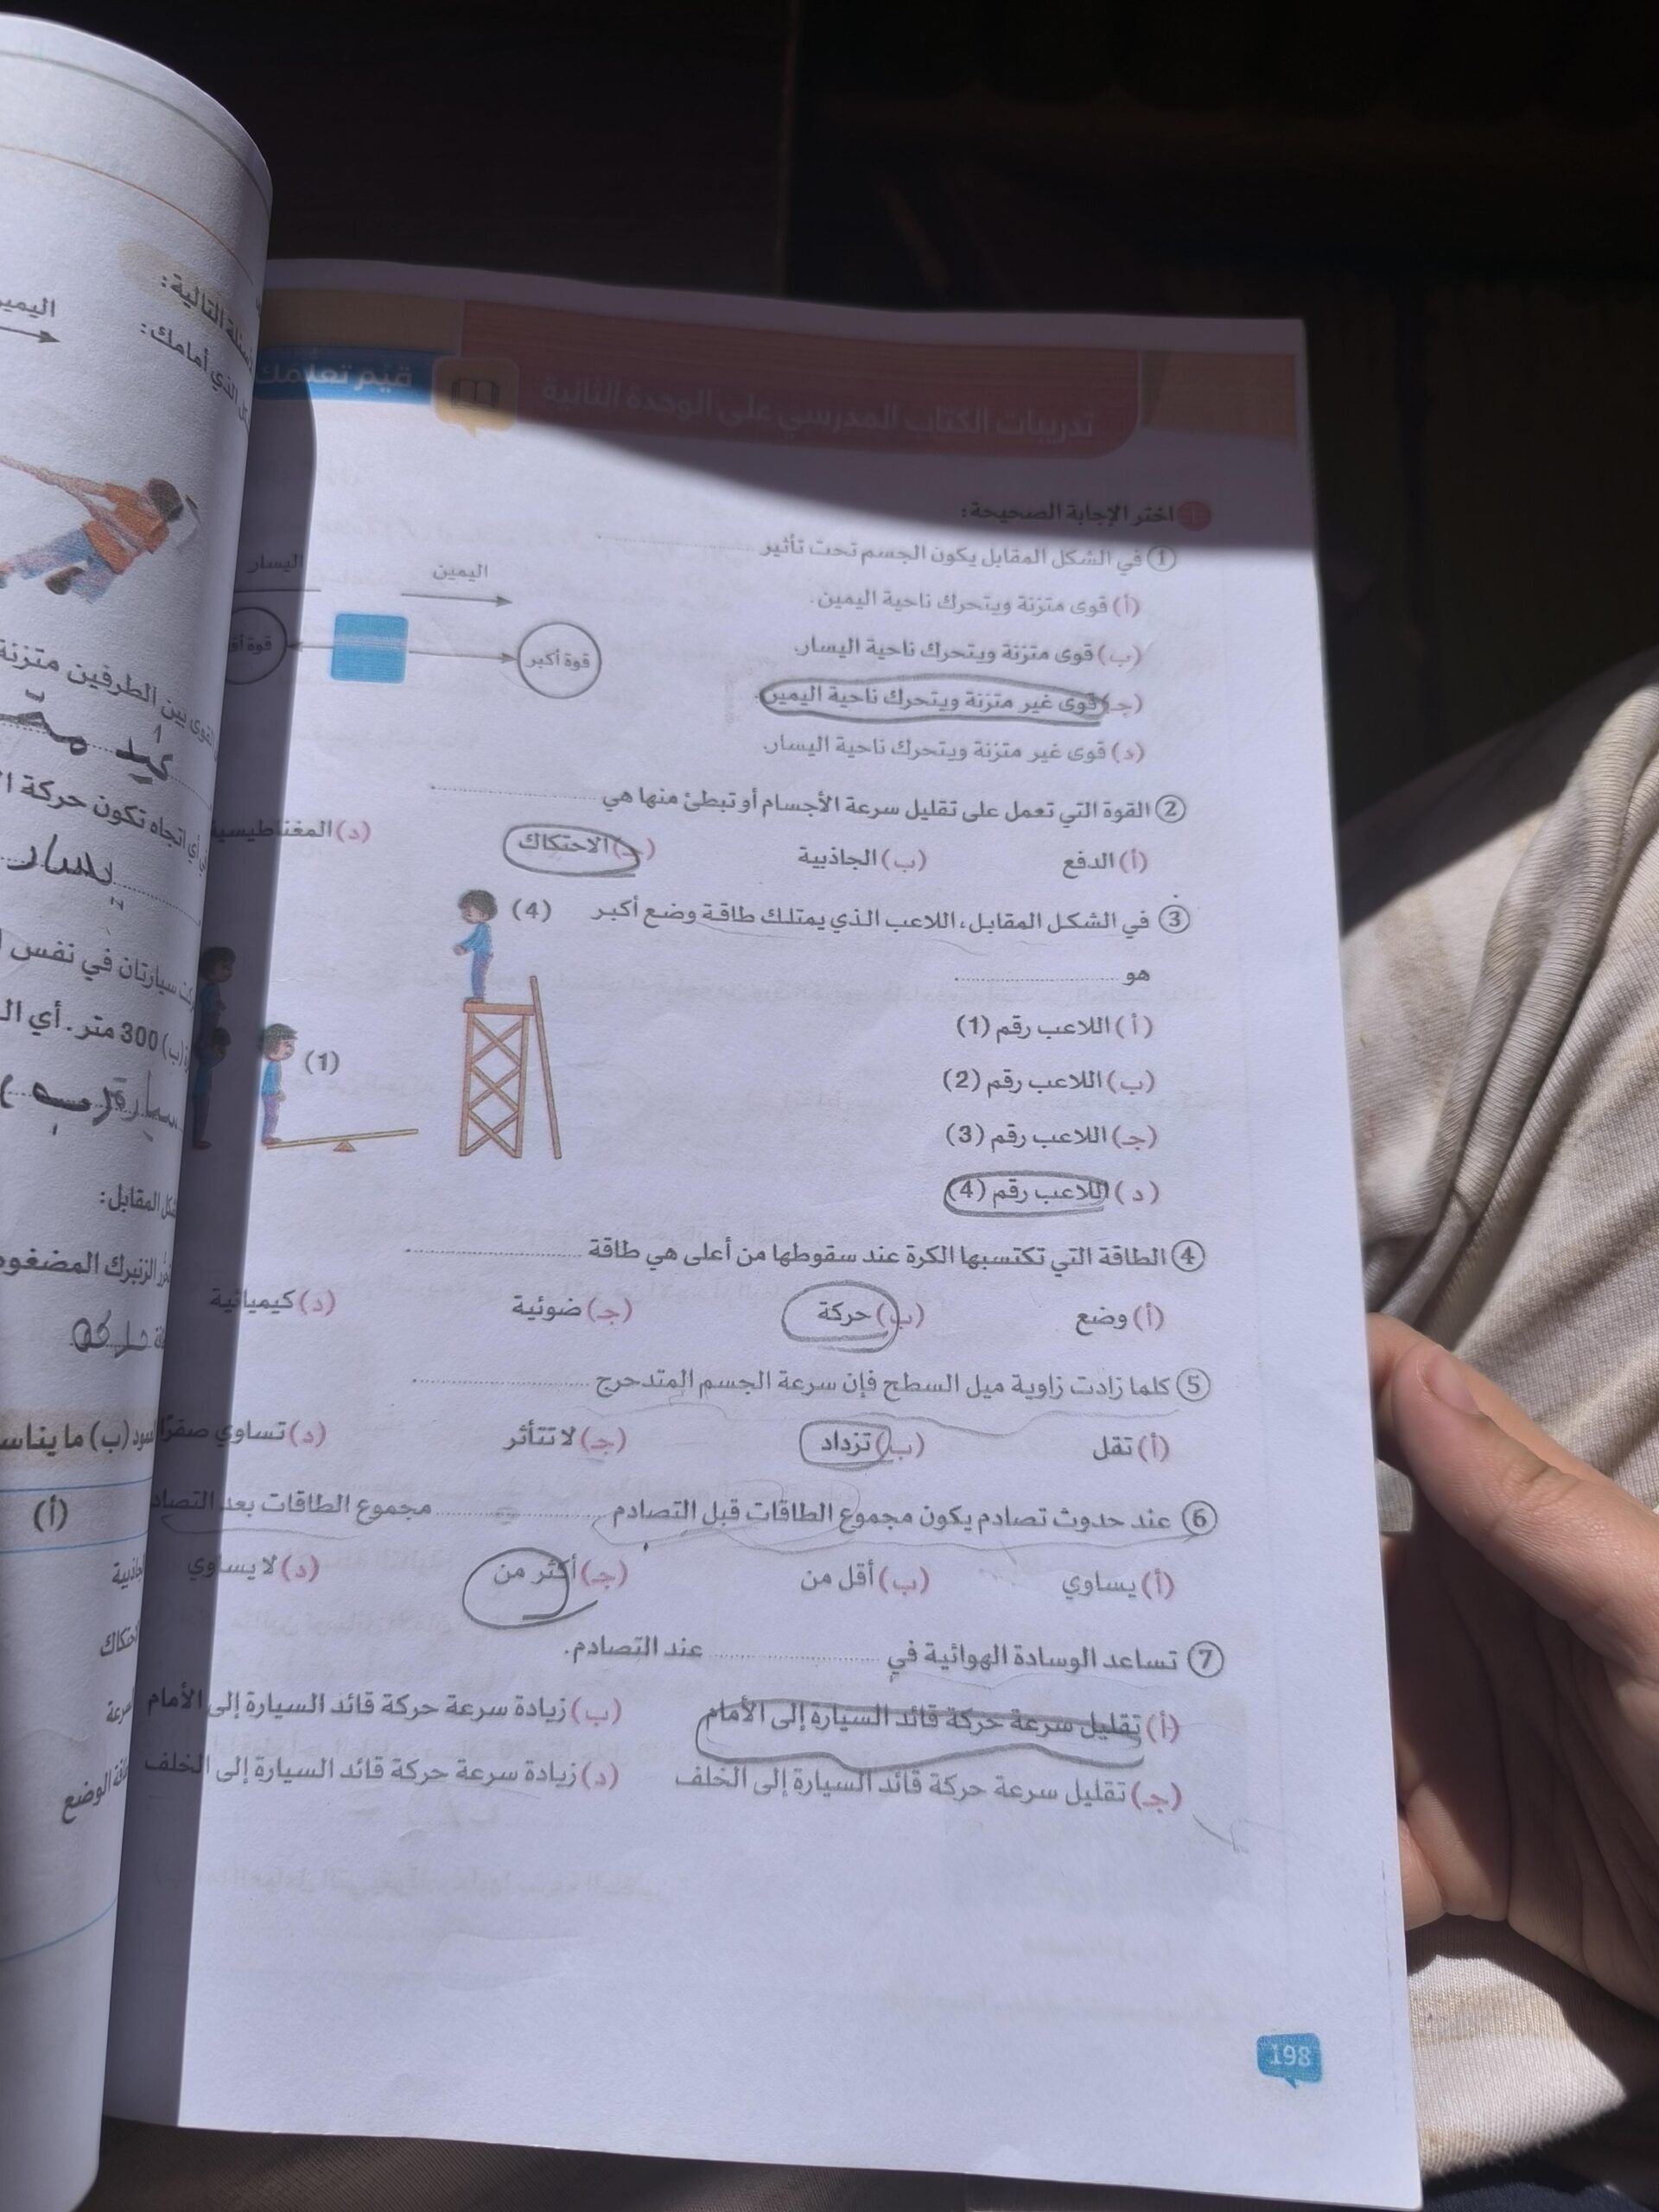 تدريبات الكتاب المدرسي على الوحدة الثانية
قيّم تعلمك
اختر الإجابة الصحيحة:
① في الشكل المقابل يكون الجسم تحت تأثير ....................
(أ) قوى متزنة ويتحرك ناحية اليمين.
(ب) قوى متزنة ويتحرك ناحية اليسار.
(جـ) قوى غير متزنة ويتحرك ناحية اليمين.
(د) قوى غير متزنة ويتحرك ناحية اليسار.
اليمين
اليسار
قوة أكبر
قوة
② القوة التي تعمل على تقليل سرعة الأجسام أو تبطئ منها هي ....................
(أ) الدفع (ب) الجاذبية (جـ) الاحتكاك (د) المغناطيسية
③ في الشكل المقابل، اللاعب الذي يمتلك طاقة وضع أكبر
هو ....................
(أ) اللاعب رقم (1)
(ب) اللاعب رقم (2)
(جـ) اللاعب رقم (3)
(د) اللاعب رقم (4)
(4)
(1)
④ الطاقة التي تكتسبها الكرة عند سقوطها من أعلى هي طاقة ....................
(أ) وضع (ب) حركة (جـ) ضوئية (د) كيميائية
⑤ كلما زادت زاوية ميل السطح فإن سرعة الجسم المتدحرج ....................
(أ) تقل (ب) تزداد (جـ) لا تتأثر (د) تساوي صفرًا
⑥ عند حدوث تصادم يكون مجموع الطاقات قبل التصادم .................... مجموع الطاقات بعد
(أ) يساوي (ب) أقل من (جـ) أكثر من (د) لا يساوي
⑦ تساعد الوسادة الهوائية في .................... عند التصادم.
(أ) تقليل سرعة حركة قائد السيارة إلى الأمام (ب) زيادة سرعة حركة قائد السيارة إلى الأمام
(جـ) تقليل سرعة حركة قائد السيارة إلى الخلف (د) زيادة سرعة حركة قائد السيارة إلى الخلف
198
التالية:
الذي أمامك:
القوى بين الطرفين متزنة
أي اتجاه تكون حركة
يسار
سيارتان في نفس
(ب) 300 متر. أي
المقابل:
الزنبرك المضغوط
حركة
(ب) ما يناسب
(أ)
الوضع